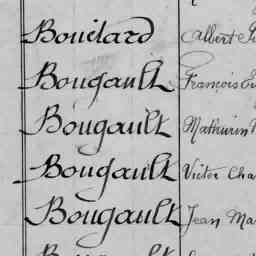 Bouélard Albert
Bougault François
Bougault Mathurin
Bougault Victor
Bougault Jean